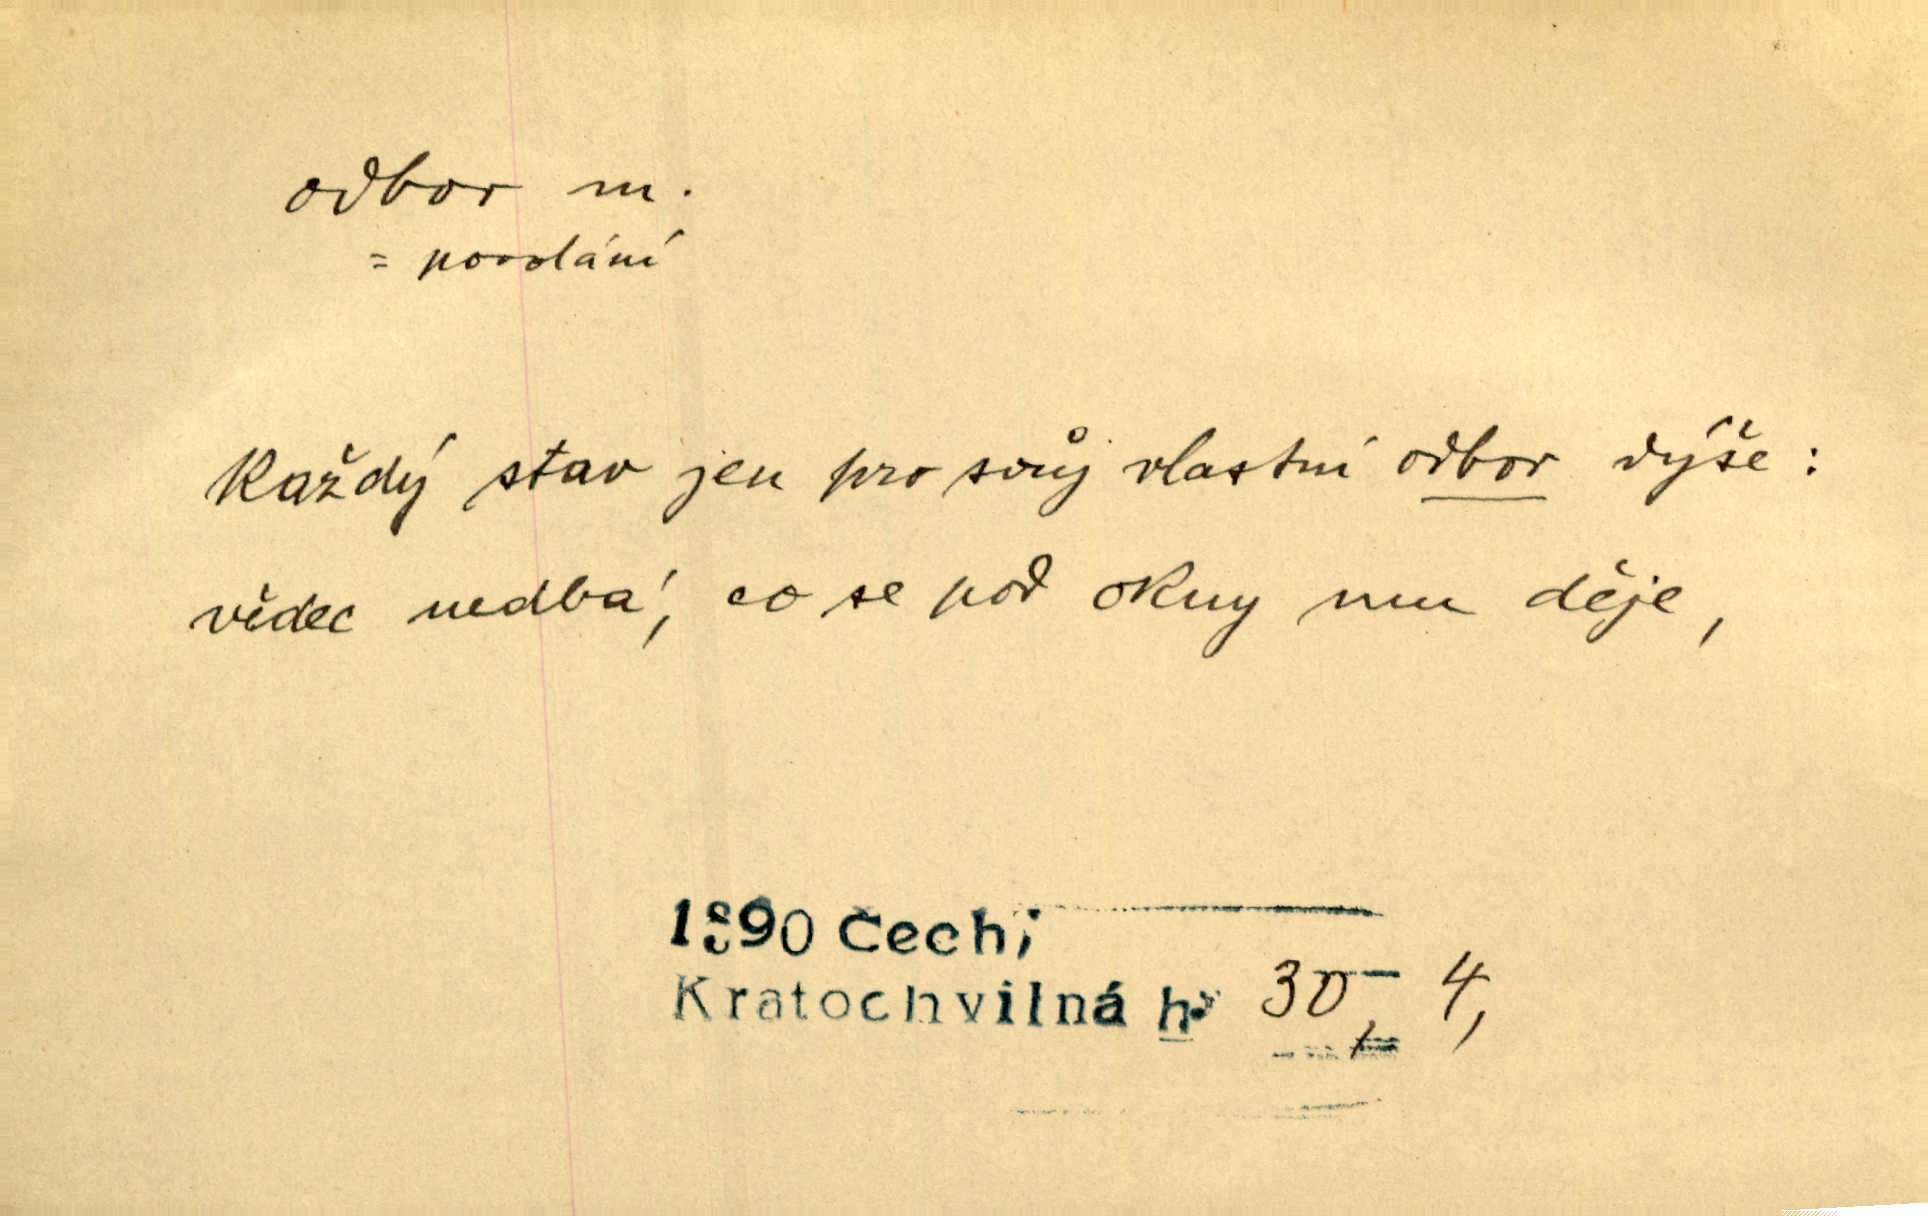 odbor m.
= povolání
Každý stav jen pro svůj vlastní odbor dýše:
vědec nedbá, co se pod okny mu děje,
1890 Čech,
Kratochvilná h. 30, 4,